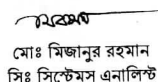 মোঃ মিজানুর রহমান
সিঃ সিস্টেমস এনালিস্ট